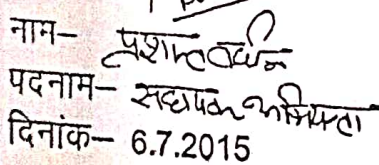 नाम- प्रशान्त वर्धन
पदनाम- सहायक अभियन्ता
दिनांक- 6.7.2015